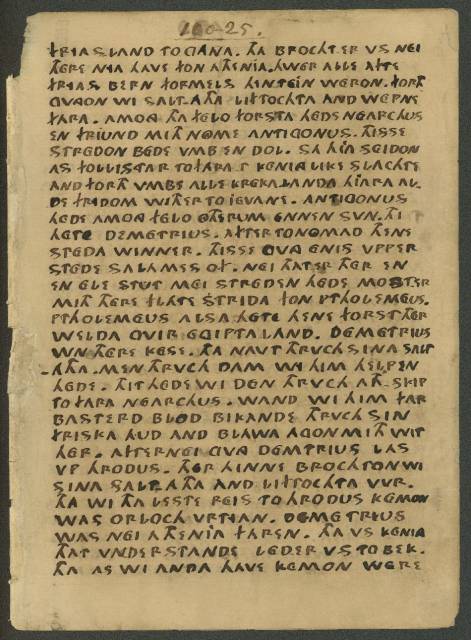 100-25.
FRJASLAND TO DVANA. THA BROCHTER VS NEI
THERE NIA HAVE FON ATHENIA. HWER ALLE ALTE
FRIAS BERN FORMELS HEMTEIN WERON. FORTH
GVNGON WI SALTATHA LITTOCHTA AND WEPNE
FARA. AMONG THA FELO FORSTA HEDE NEARCHUS
EN FRIUND MITH NOME ANTIGONUS. THISSE
STREDON BEDE VMB EN DOL. SA HIA SEIDON
AS FOLLISTAR TO FARA-T KENINGLIKE SLACHTE
AND FORTH VMBE ALLE KREKALANDA HIARA AL-
DE FRIDOM WITHER TO IEVANE. ANTIGONUS
HEDE AMONG FELO OTHERUM ENNEN SVN. THI
HETE DEMETRIUS. AFTER TONOMAD THENE
STEDA WINNER. THISSE GVNG ENIS VPPER
STEDE SALAMIS OF. NEI THATER THER EN
EN ELE STUT MEI STREDEN HEDE MOSTER
MITH THERE FLATE STRIDA FON PTHOLEMEUS.
PTHOLEMEUS ALSA HETE HENE FORST THER
WELDA OVIR EGIPTALAND. DEMETRIUS
WN THERE KESE. THA NAVT THRVCH SINA SALT-
-ATHA. MEN THRVCH DAM WI HIM HELPEN
HEDE. THIT HEDE WI DEN THRVCH ATH-SKIP
TO FARA NEARCHUS. WAND WI HIM FAR
BASTERD BLOD BIKANDE THRVCH SIN
FRISKA HUD AND BLAWA AGON MITH WIT
HER. AFTERNEI GVNG DEMETRIUS LAS
VP HRODUS. THER HINNE BROCHTON WI
SINA SALTATHA AND LITTOCHTA VVR.
THA WI THA LESTE REIS TO HRODUS KEMON
WAS ORLOCH VRTIAN. DEMETRIUS
WAS NEI ATHENIA FAREN. THA VS KENING
THAT VNDERSTANDE LEDER VS TO BEK.
THA AS WI ANDA HAVE KEMON WERE